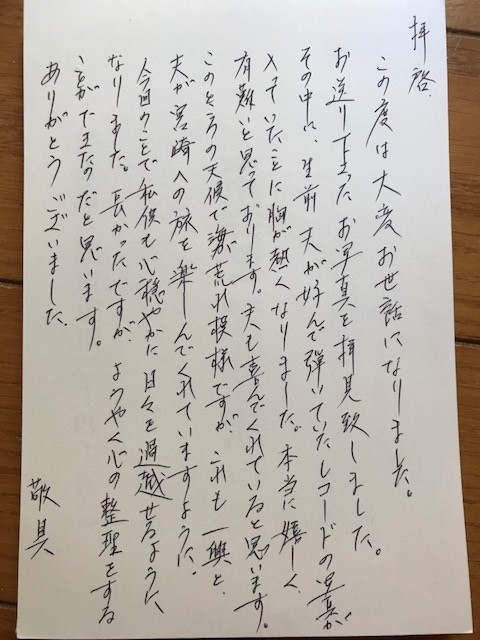 拝啓
この度は大変お世話になりました。
お送り下さったお写真を拝見致しました。
その中に、生前夫が好んで弾いていたレコードの写真が
入っていたことに胸が熱くなりました。本当に嬉しく
有難いと思っております。夫も喜んでくれていると思います。
このところの天候で海が荒れ模様ですが、これも一興と、
夫が宮崎への旅を楽しんでくれていますように。
今回のことで私供も心穏やかに日々を過越せるように
なりました。長かったですが、ようやく心の整理をする
ことができたのだと思います。
ありがとうございました。
敬具